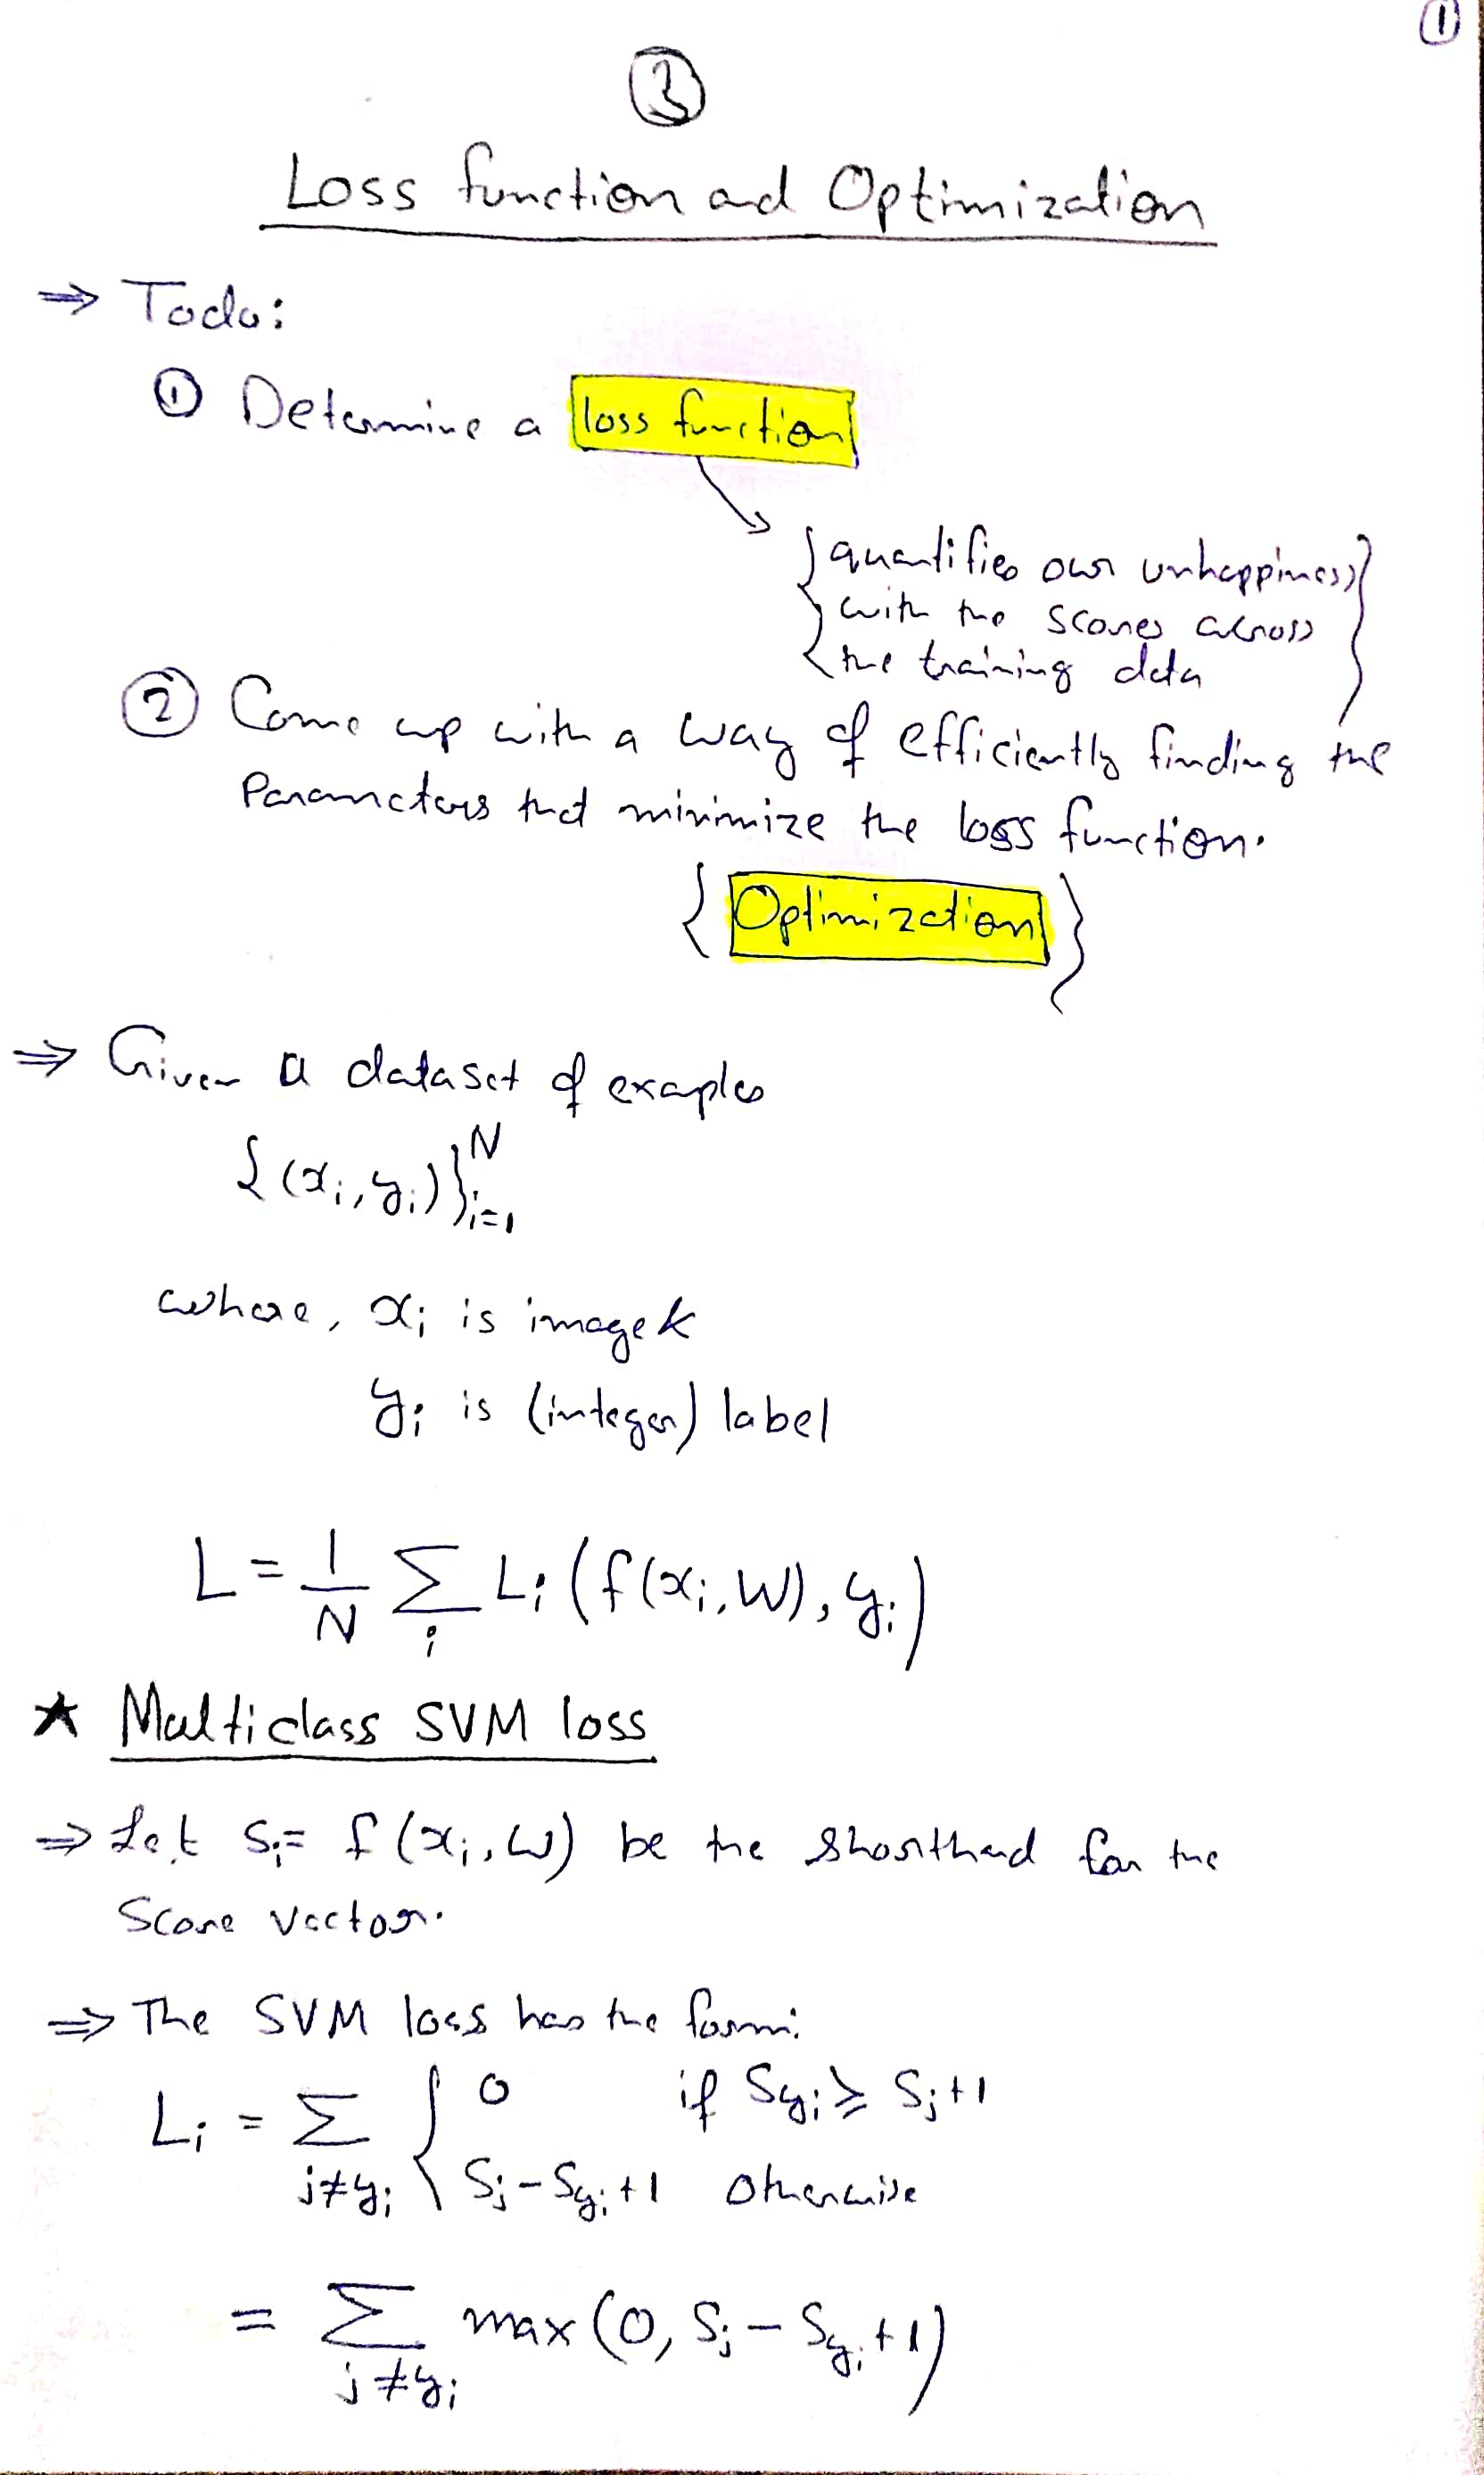 ①
③
Loss function and Optimization
⇒ Todo:
① Determine a loss function
{quantifies our unhappiness
with the scores across
the training data}
② Come up with a way of efficiently finding the
Parameters that minimize the loss function.
{Optimization}
⇒ Given a dataset of exaples
{(xᵢ, yᵢ)}ᵢ₌₁ᴺ
where, xᵢ is image &
yᵢ is (integer) label
L = 1/N Σᵢ Lᵢ (f(xᵢ, W), yᵢ)
★ Multiclass SVM loss
⇒ Let sᵢ = f(xᵢ, W) be the shorthand for the
Score vector.
⇒ The SVM loss has the form:
Lᵢ = Σ_{j≠yᵢ} { 0 if S_{yᵢ} ≥ Sⱼ + 1
Sⱼ − S_{yᵢ} + 1 otherwise
= Σ_{j≠yᵢ} max(0, Sⱼ − S_{yᵢ} + 1)